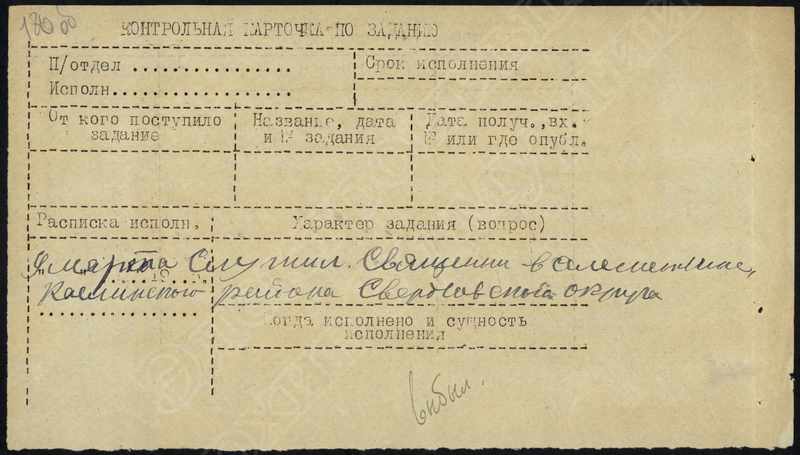 КОНТРОЛЬНАЯ КАРТОЧКА ПО ЗАДАНИЮ
П/отдел ................
Срок исполнения
Исполн..................
От кого поступило задание
Название, дата и № задания
Дата получ., вх. № или где опубл.
Расписка исполн.
Характер задания (вопрос)
марта Служил. Священни в
Каслинского района Свердловского округа
Когда исполнено и сущность исполнения
выбыл.